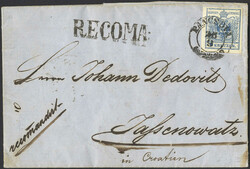 RECOMA
Herrn Johann Dedovits
Jassenowatz
in Croatien
recomandirt